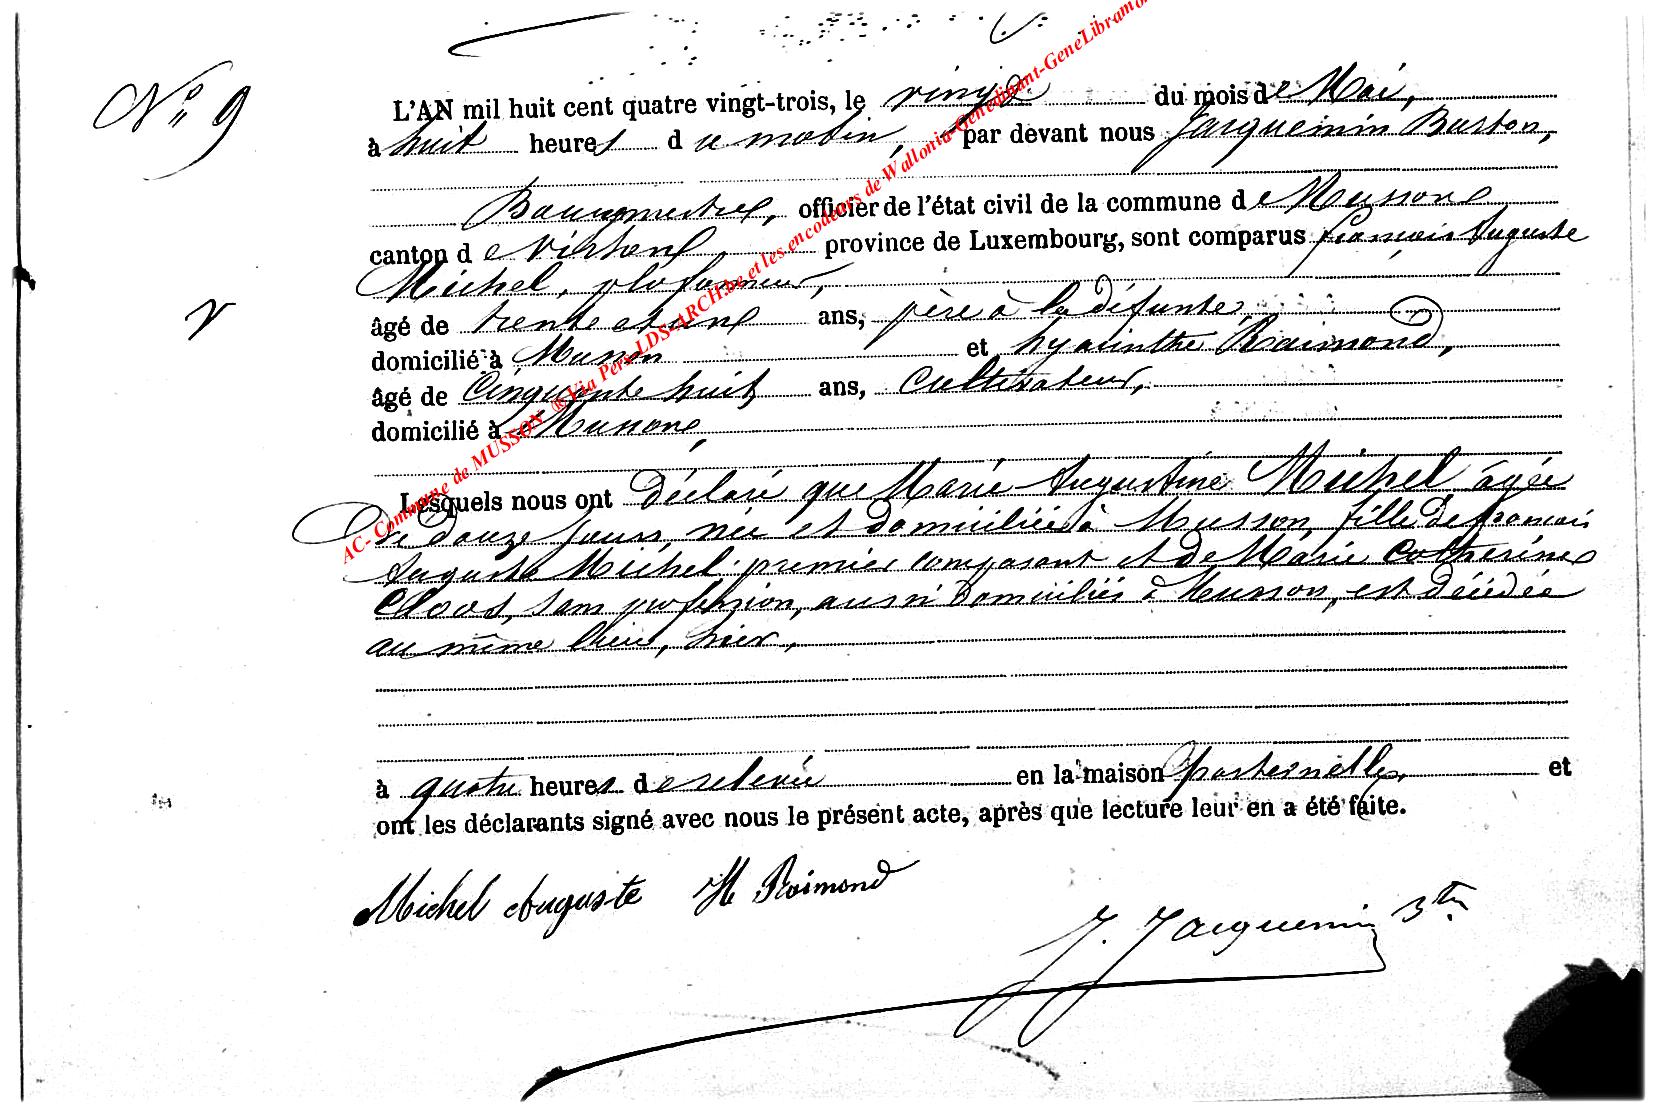 N° 9
L'AN mil huit cent quatre vingt-trois, le vingt du mois de Mai,
à huit heures du matin, par devant nous Jacquemin Baston,
Bourgmestre, officier de l'état civil de la commune de Musson
canton de Virton province de Luxembourg, sont comparus françois Auguste
Michel, plafonneur,
âgé de trente et un ans, père à la défunte,
domicilié à Musson et hyacinthe Raimond,
âgé de Cinquante huit ans, Cultivateur,
domicilié à Musson,
Lesquels nous ont déclaré que Marie Augustine Michel âgée
de douze jours, née et domiciliée à Musson, fille de francois
Auguste Michel premier comparant et de Marie Catherine
Cloos, sans profession, aussi domiciliés à Musson, est décédée
au même lieu, hier,
à quatre heures de relevée en la maison paternelle, et
ont les déclarants signé avec nous le présent acte, après que lecture leur en a été faite.
Michel Auguste H Raimond
J. Jacquemin Btn
AC- Commune de MUSSON ® Via Pers-LDS-ARCH.be et les encodeurs de Wallonia-Genedinant-GeneLibramo